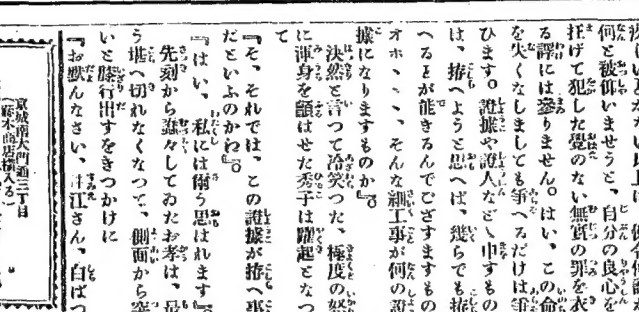 何と被仰いませうと、自分の良心を
枉げて犯した覺のない無實の罪を衣
る譯には參りません。はい、この命
を失くなしましても爭へるだけは爭
ひます。證據や證人などゝ申すもの
は、拵へようと思へば、幾らでも拵
へるとが能きるんでございますもの
オホヽヽ、そんな細工事が何の證
據になりますものか』。
決然と言つて冷笑つた、極度の怒
に渾身を顫はせた秀子は躍起となつ
て
『そ、それでは、この證據が拵へ事
だといふのかわ』。
『はい、私には爾う思はれます』
先刻から蟲々してゐたお孝は、最
う堪へ切れなくなつて、側面から突
いと膝行出すをきつかけに
『お默んなさい、江さん、白ばつ
京城南大門通三丁目
(藤木商店橫入る)